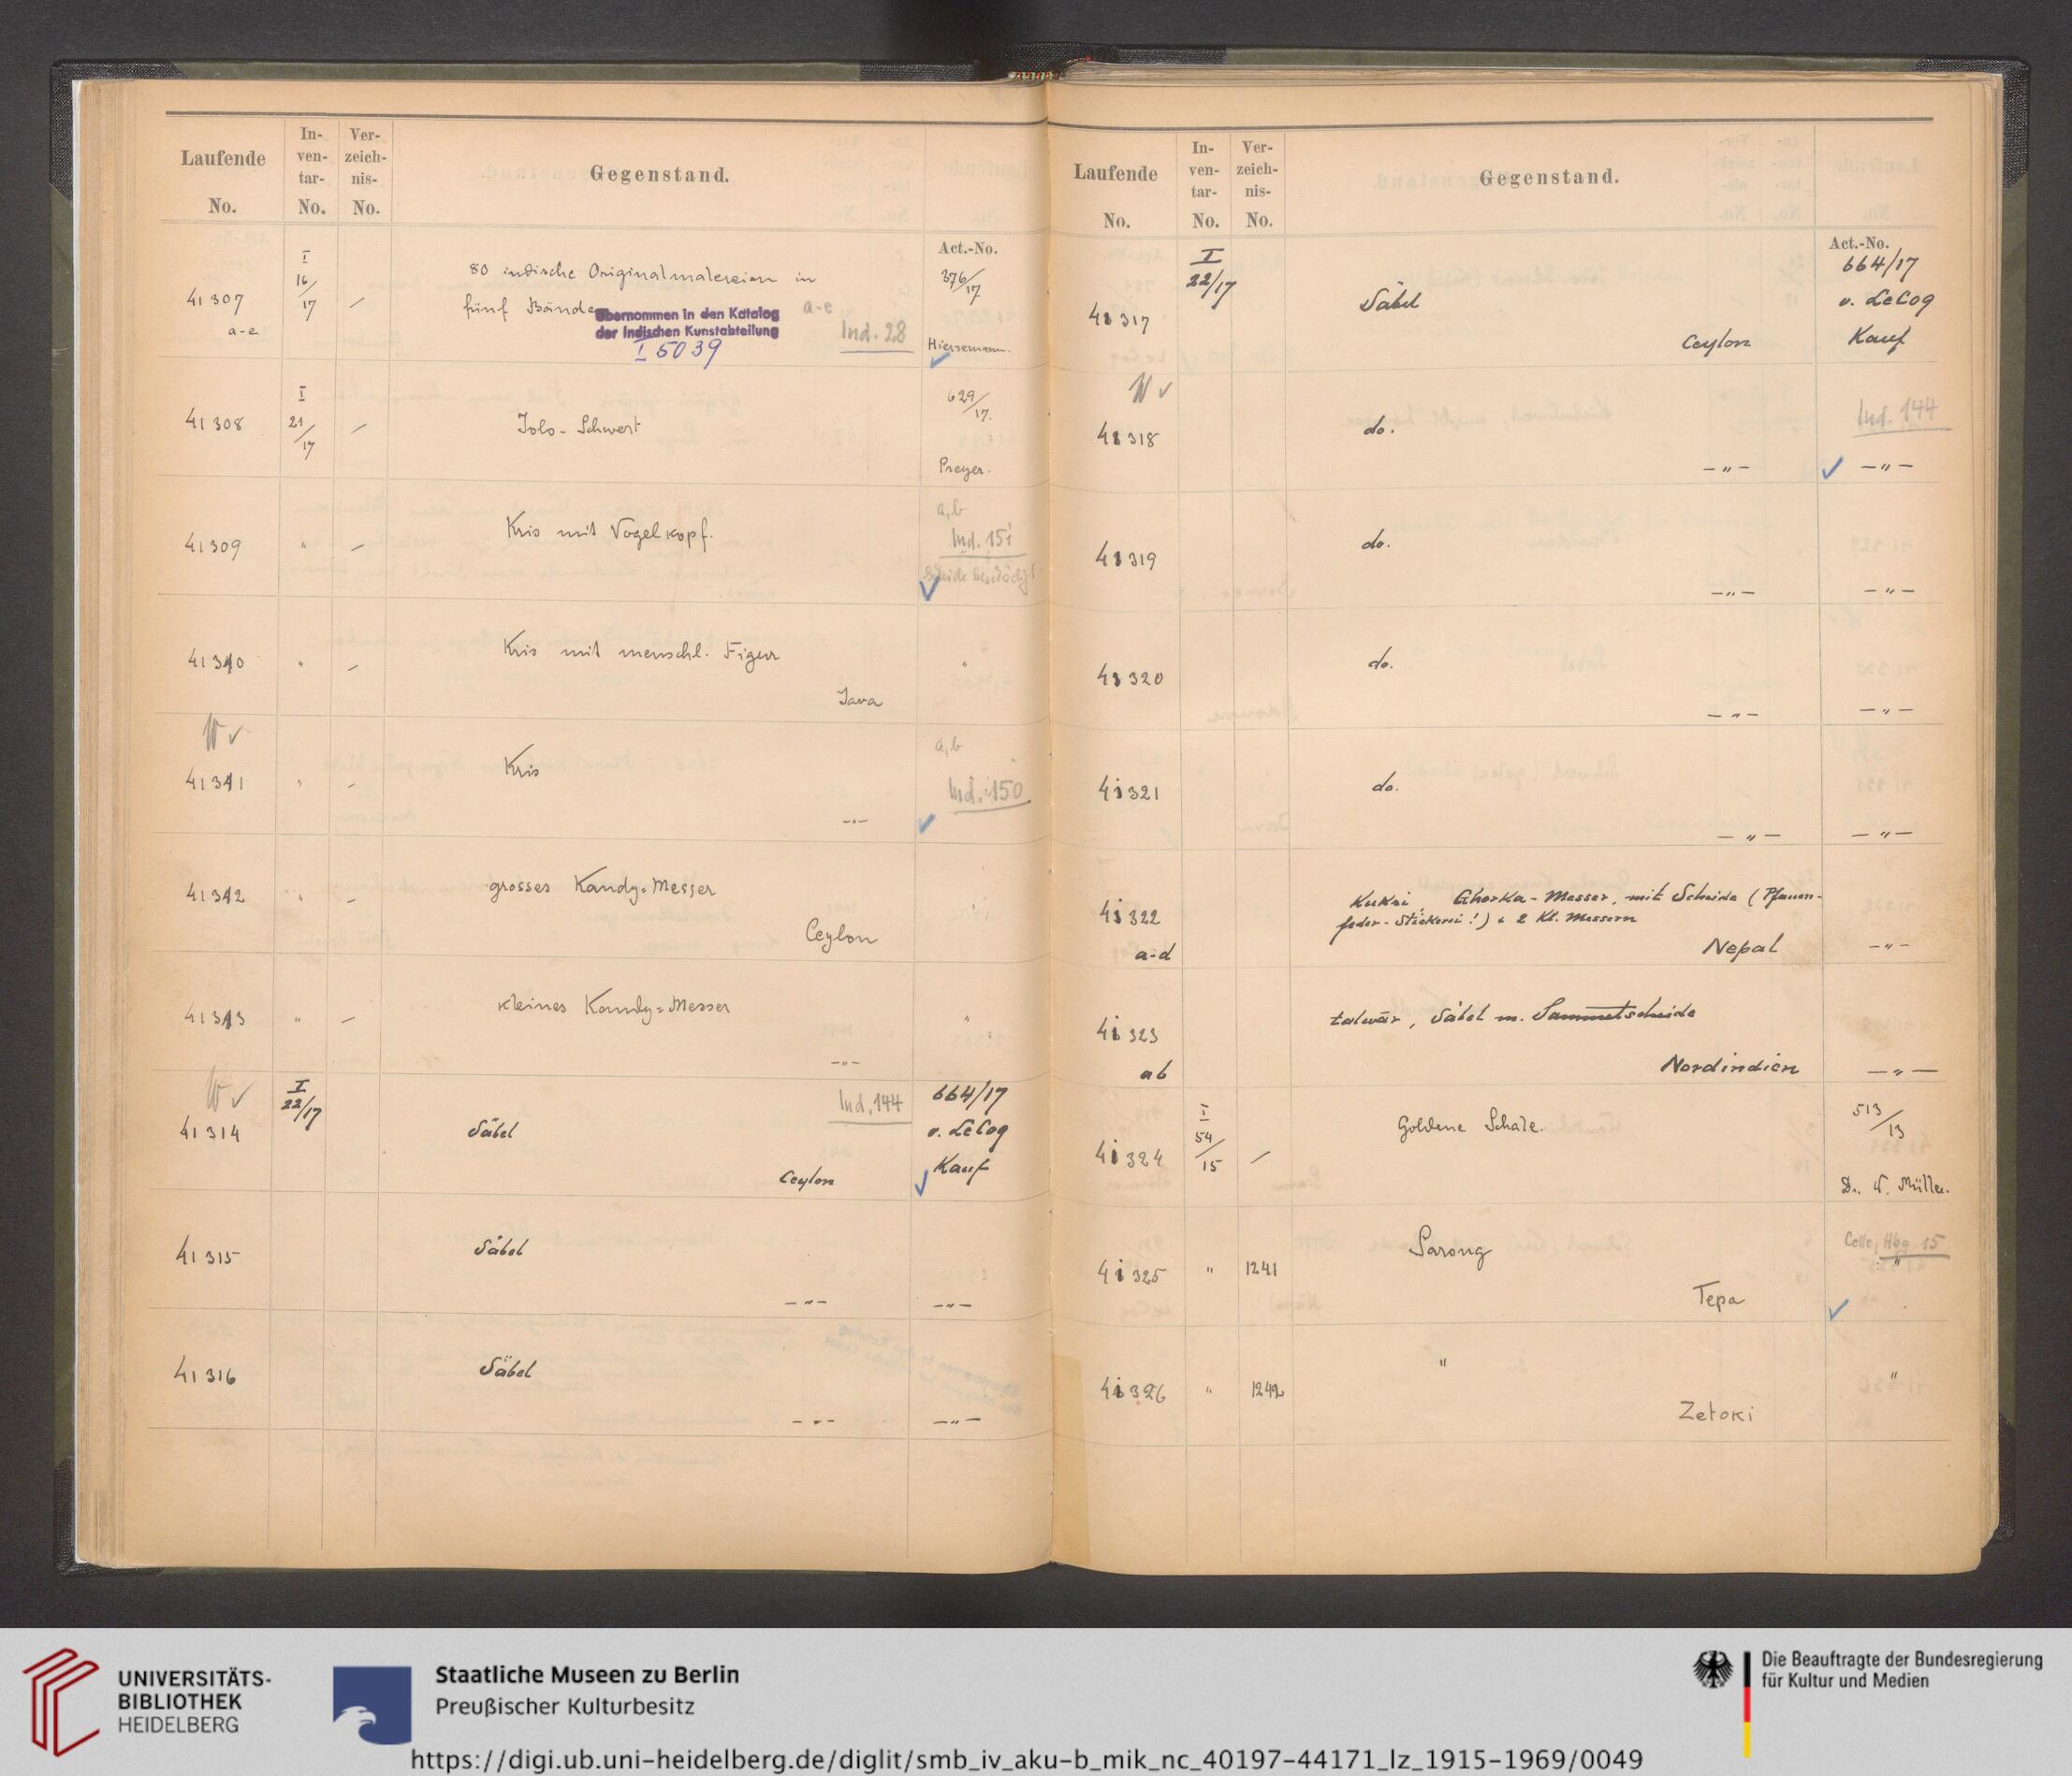 Laufende No.
In-ven-tar-No.
Ver-zeich-nis-No.
Gegenstand.
Act.-No.
I 16/17
376/17
80 indische Originalmalereien in
41307 –
fünf Bände a-e
a-e
Übernommen in den Katalog
der Indischen Kunstabteilung
I 5039
Ind. 28
Hiersemann.
I 21/17
629/17.
41308 – Jolo-Schwert
Preyer.
a,b
41309 " – Kris mit Vogelkopf.
Ind. 151
Scheide beschädigt
41310 " – Kris mit menschl. Figur "
Java
W ✓
a,b
41311 " – Kris
Ind. 150
–"–
41312 " – grosses Kandy=Messer "
Ceylon
41313 " – kleines Kandy=Messer "
–"–
W ✓
I 22/17
Ind. 144
664/17
41314 Säbel
v. LeCoq
Ceylon
Kauf
41315 Säbel
–"– –"–
41316 Säbel
–"– –"–
Laufende No.
In-ven-tar-No.
Ver-zeich-nis-No.
Gegenstand.
Act.-No.
I 22/17
664/17
41317 Säbel
v. LeCoq
Ceylon
Kauf
W ✓
Ind. 144
41318 do.
–"– –"–
41319 do.
–"– –"–
41320 do.
–"– –"–
41321 do.
–"– –"–
Kukri, Ghorka-Messer, mit Scheide (Pfauen-
41322 feder-Stickerei!) & 2 Kl. Messern
a-d Nepal –"–
talwār, Säbel m. Sammetscheide
41323
ab Nordindien –"–
I 54/15
513/13
41324 – Goldene Schale.
Dr. W. Müller.
Celle, Hbg 15
41325 " 1241 Sarong "
Tepa
41326 " 1242 " "
Zetoki
UNIVERSITÄTS-
BIBLIOTHEK
HEIDELBERG
Staatliche Museen zu Berlin
Preußischer Kulturbesitz
Die Beauftragte der Bundesregierung
für Kultur und Medien
https://digi.ub.uni-heidelberg.de/diglit/smb_iv_aku-b_mik_nc_40197-44171_lz_1915-1969/0049